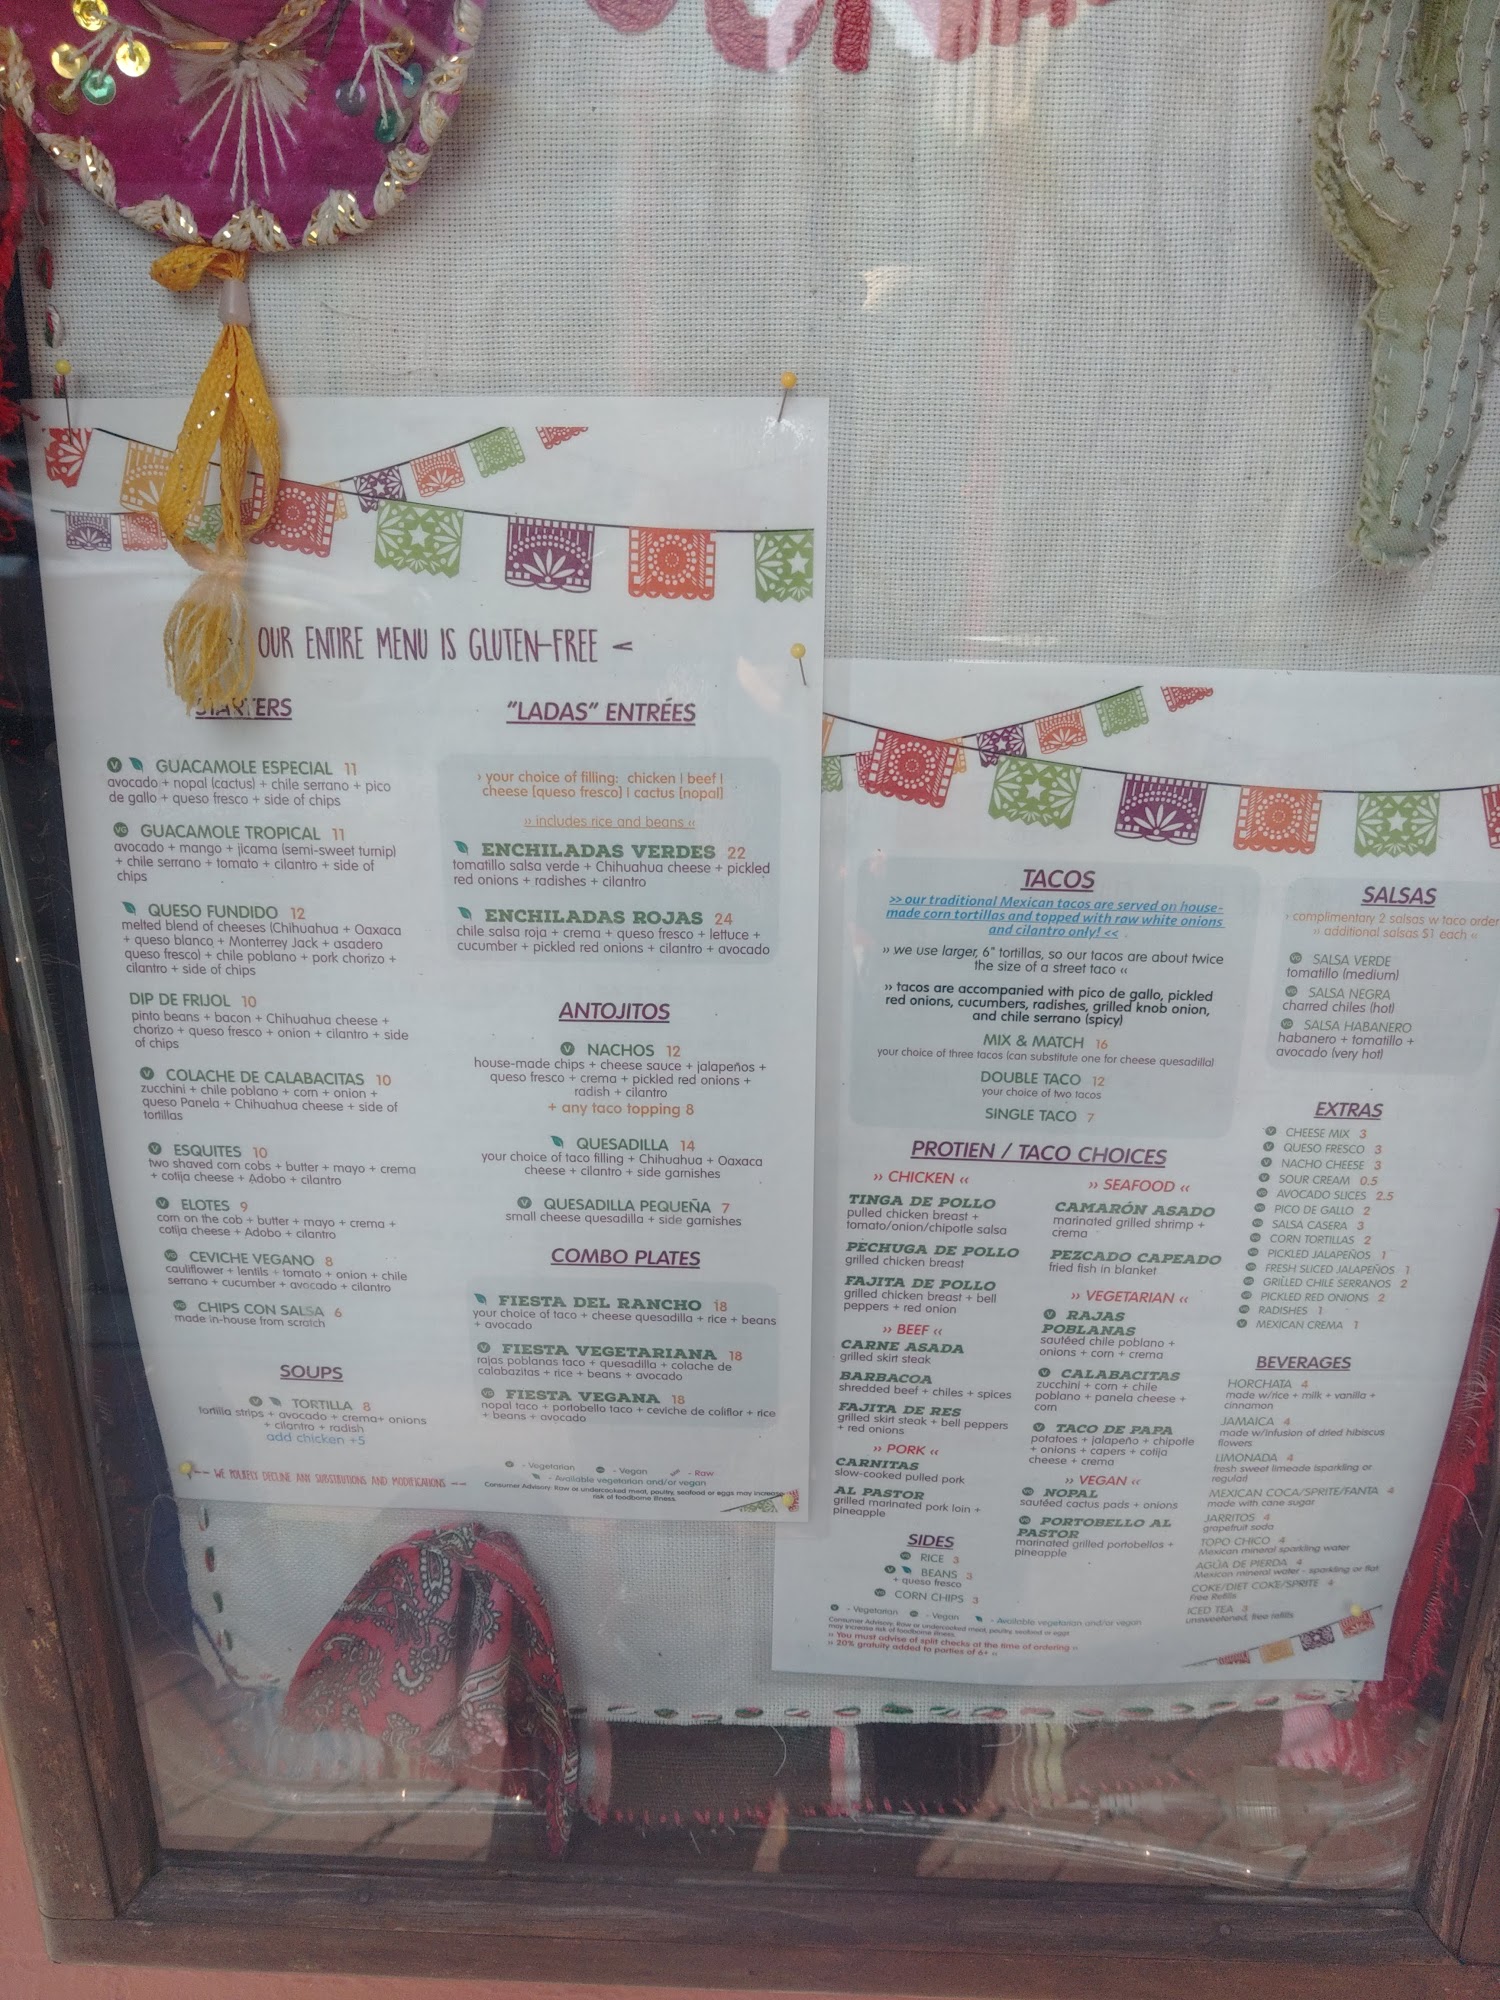 OUR ENTIRE MENU IS GLUTEN-FREE <
STARTERS
V GUACAMOLE ESPECIAL 11
avocado + nopal (cactus) + chile serrano + pico
de gallo + queso fresco + side of chips
VG GUACAMOLE TROPICAL 11
avocado + mango + jicama (semi-sweet turnip)
+ chile serrano + tomato + cilantro + side of
chips
QUESO FUNDIDO 12
melted blend of cheeses (Chihuahua + Oaxaca
+ queso blanco + Monterrey Jack + asadero
queso fresco) + chile poblano + pork chorizo +
cilantro + side of chips
DIP DE FRIJOL 10
pinto beans + bacon + Chihuahua cheese +
chorizo + queso fresco + onion + cilantro + side
of chips
V COLACHE DE CALABACITAS 10
zucchini + chile poblano + corn + onion +
queso Panela + Chihuahua cheese + side of
tortillas
V ESQUITES 10
two shaved corn cobs + butter + mayo + crema
+ cotija cheese + Adobo + cilantro
V ELOTES 9
corn on the cob + butter + mayo + crema +
cotija cheese + Adobo + cilantro
VG CEVICHE VEGANO 8
cauliflower + lentils + tomato + onion + chile
serrano + cucumber + avocado + cilantro
VG CHIPS CON SALSA 6
made in-house from scratch
SOUPS
V TORTILLA 8
tortilla strips + avocado + crema+ onions
+ cilantro + radish
add chicken +5
-- WE POLITELY DECLINE ANY SUBSTITUTIONS AND MODIFICATIONS --
"LADAS" ENTRÉES
› your choice of filling: chicken | beef |
cheese [queso fresco] | cactus [nopal]
» includes rice and beans «
ENCHILADAS VERDES 22
tomatillo salsa verde + Chihuahua cheese + pickled
red onions + radishes + cilantro
ENCHILADAS ROJAS 24
chile salsa roja + crema + queso fresco + lettuce +
cucumber + pickled red onions + cilantro + avocado
ANTOJITOS
V NACHOS 12
house-made chips + cheese sauce + jalapeños +
queso fresco + crema + pickled red onions +
radish + cilantro
+ any taco topping 8
QUESADILLA 14
your choice of taco filling + Chihuahua + Oaxaca
cheese + cilantro + side garnishes
V QUESADILLA PEQUEÑA 7
small cheese quesadilla + side garnishes
COMBO PLATES
FIESTA DEL RANCHO 18
your choice of taco + cheese quesadilla + rice + beans
+ avocado
V FIESTA VEGETARIANA 18
rajas poblanas taco + quesadilla + colache de
calabazitas + rice + beans + avocado
VG FIESTA VEGANA 18
nopal taco + portobello taco + ceviche de coliflor + rice
+ beans + avocado
- Vegetarian - Vegan - Raw
- Available vegetarian and/or vegan
Consumer Advisory: Raw or undercooked meat, poultry, seafood or eggs may increase
risk of foodborne illness.
TACOS
>> our traditional Mexican tacos are served on house-
made corn tortillas and topped with raw white onions
and cilantro only! <<
» we use larger, 6" tortillas, so our tacos are about twice
the size of a street taco «
» tacos are accompanied with pico de gallo, pickled
red onions, cucumbers, radishes, grilled knob onion,
and chile serrano (spicy)
MIX & MATCH 16
your choice of three tacos (can substitute one for cheese quesadilla)
DOUBLE TACO 12
your choice of two tacos
SINGLE TACO 7
PROTIEN / TACO CHOICES
» CHICKEN «
TINGA DE POLLO
pulled chicken breast +
tomato/onion/chipotle salsa
PECHUGA DE POLLO
grilled chicken breast
FAJITA DE POLLO
grilled chicken breast + bell
peppers + red onion
» BEEF «
CARNE ASADA
grilled skirt steak
BARBACOA
shredded beef + chiles + spices
FAJITA DE RES
grilled skirt steak + bell peppers
+ red onions
» PORK «
CARNITAS
slow-cooked pulled pork
AL PASTOR
grilled marinated pork loin +
pineapple
» SEAFOOD «
CAMARÓN ASADO
marinated grilled shrimp +
crema
PEZCADO CAPEADO
fried fish in blanket
» VEGETARIAN «
V RAJAS
POBLANAS
sautéed chile poblano +
onions + corn + crema
V CALABACITAS
zucchini + corn + chile
poblano + panela cheese +
corn
V TACO DE PAPA
potatoes + jalapeño + chipotle
+ onions + capers + cotija
cheese + crema
» VEGAN «
VG NOPAL
sautéed cactus pads + onions
VG PORTOBELLO AL
PASTOR
marinated grilled portobellos +
pineapple
SIDES
VG RICE 3
V BEANS 3
+ queso fresco
VG CORN CHIPS 3
- Vegetarian - Vegan - Available vegetarian and/or vegan
Consumer Advisory: Raw or undercooked meat, poultry, seafood or eggs
may increase risk of foodborne illness.
» You must advise of split checks at the time of ordering »
» 20% gratuity added to parties of 6+ »
SALSAS
› complimentary 2 salsas w taco order
» additional salsas $1 each «
VG SALSA VERDE
tomatillo (medium)
VG SALSA NEGRA
charred chiles (hot)
VG SALSA HABANERO
habanero + tomatillo +
avocado (very hot)
EXTRAS
V CHEESE MIX 3
V QUESO FRESCO 3
V NACHO CHEESE 3
V SOUR CREAM 0.5
VG AVOCADO SLICES 2.5
VG PICO DE GALLO 2
VG SALSA CASERA 3
VG CORN TORTILLAS 2
VG PICKLED JALAPEÑOS 1
VG FRESH SLICED JALAPEÑOS 1
VG GRILLED CHILE SERRANOS 2
VG PICKLED RED ONIONS 2
VG RADISHES 1
V MEXICAN CREMA 1
BEVERAGES
HORCHATA 4
made w/rice + milk + vanilla +
cinnamon
JAMAICA 4
made w/infusion of dried hibiscus
flowers
LIMONADA 4
fresh sweet limeade (sparkling or
regular)
MEXICAN COCA/SPRITE/FANTA 4
made with cane sugar
JARRITOS 4
grapefruit soda
TOPO CHICO 4
Mexican mineral sparkling water
AGUA DE PIERDA 4
Mexican mineral water - sparkling or flat
COKE/DIET COKE/SPRITE 4
Free Refills
ICED TEA 3
unsweetened, free refills